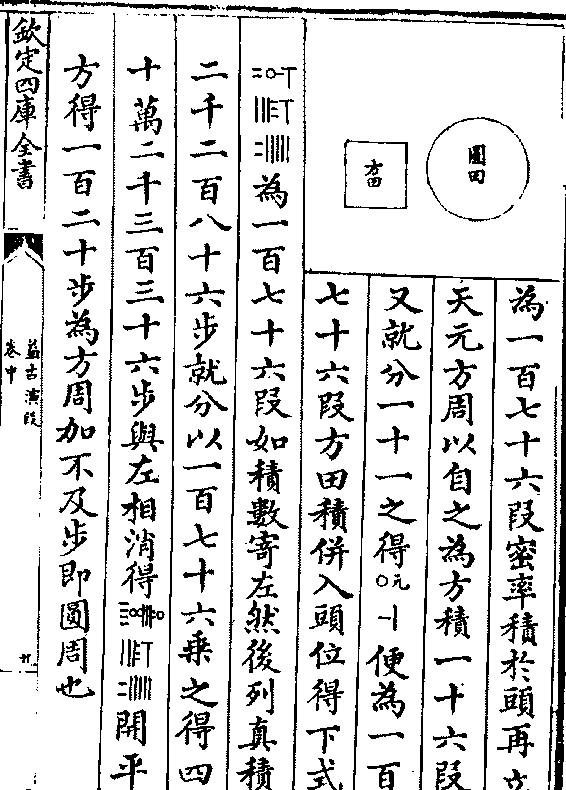 圓田
方田
為一百七十六段密率積於頭再立
天元方周以自之為方積一十六段
又就分一十一之得〇元
便為一百
七十六段方田積併入頭位得下式
為一百七十六段如積數寄左然後列真積
二千二百八十六步就分以一百七十六乗之得四
十萬二千三百三十六步與左相消得
開平
方得一百二十步為方周加不及步即圓周也
欽定四庫全書
益古演段
卷中